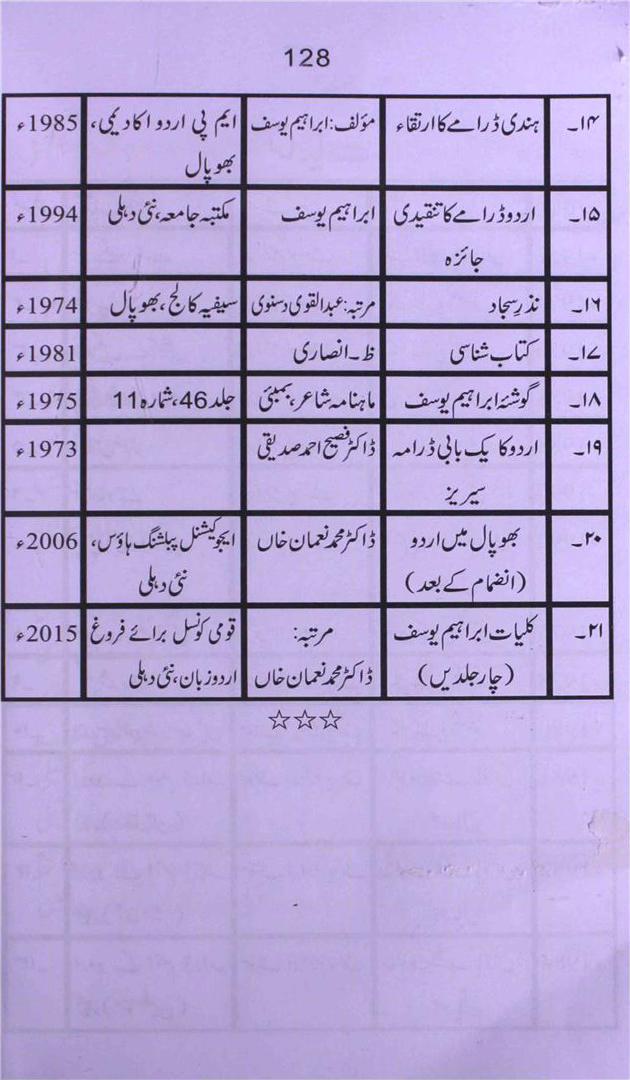 128
۱۴۔ ہندی ڈرامے کا ارتقاء مؤلف: ابراہیم یوسف ایم پی اردو اکادیمی، 1985ء
بھوپال
۱۵۔ اردو ڈرامے کا تنقیدی ابراہیم یوسف مکتبہ جامعہ، نئی دہلی 1994ء
جائزہ
۱۶۔ نذرِ سجاد مرتبہ: عبدالقوی دسنوی سیفیہ کالج، بھوپال 1974ء
۱۷۔ کتاب شناسی ظ۔ انصاری 1981ء
۱۸۔ گوشئہ ابراہیم یوسف ماہنامہ شاعر، بمبئی جلد 46، شمارہ 11 1975ء
۱۹۔ اردو کا یک بابی ڈرامہ ڈاکٹر فصیح احمد صدیقی 1973ء
سیریز
۲۰۔ بھوپال میں اردو ڈاکٹر محمد نعمان خاں ایجوکیشنل پبلشنگ ہاؤس، 2006ء
(انضمام کے بعد) نئی دہلی
۲۱۔ کلیات ابراہیم یوسف مرتبہ: قومی کونسل برائے فروغ 2015ء
(چار جلدیں) ڈاکٹر محمد نعمان خاں اردو زبان، نئی دہلی
☆☆☆